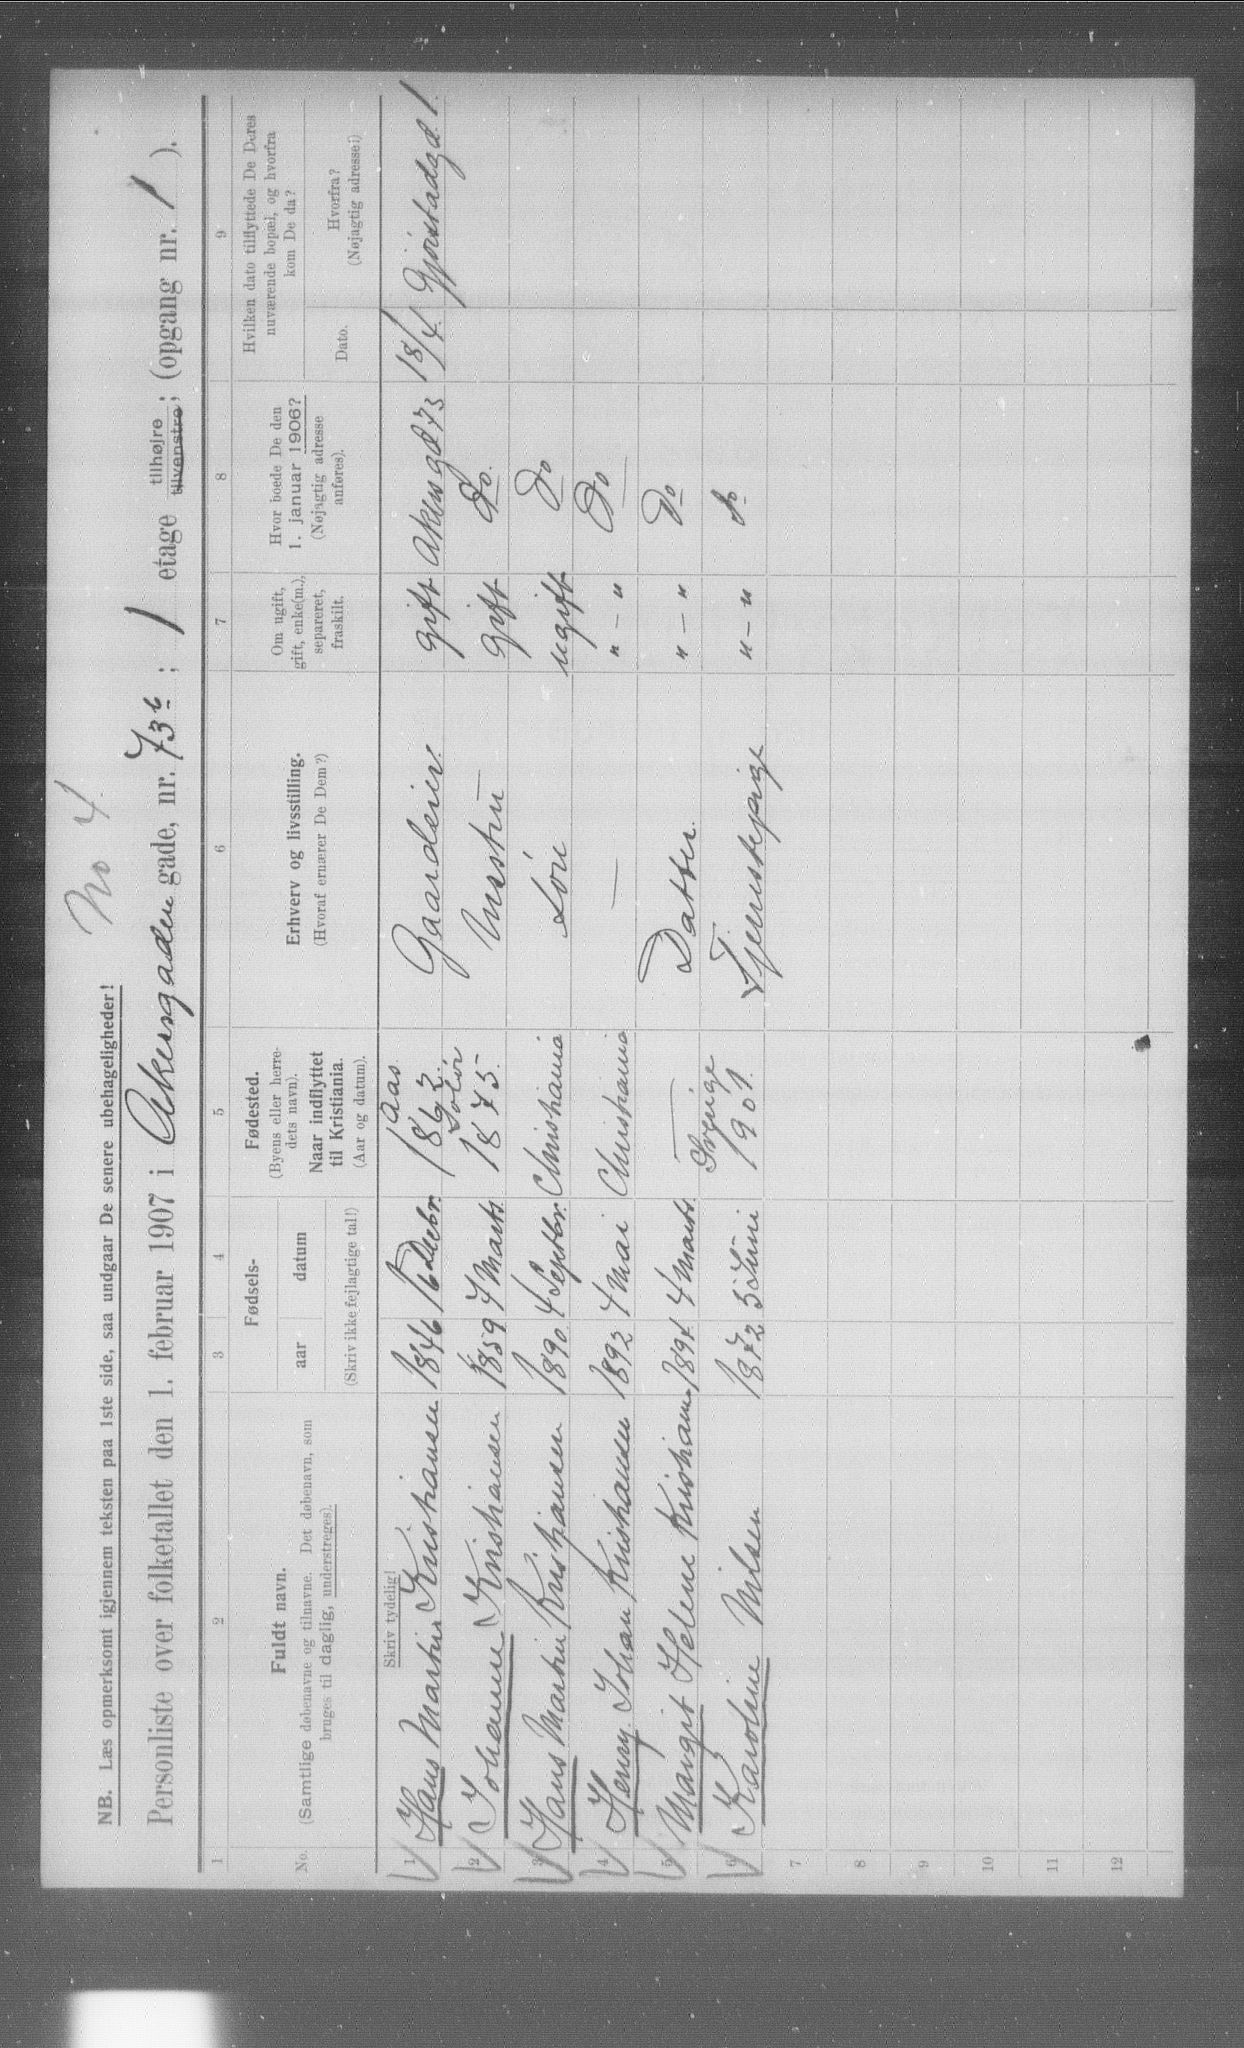 No 4.
NB. Læs opmerksomt igjennem teksten paa 1ste side, saa undgaar De senere ubehageligheder!
Personliste over folketallet den 1. februar 1907 i Akersgaden gade, nr. 73 b ; 1 etage tilhøjre tilvenstre ; (opgang nr. 1 ).
1 2 3 4 5 6 7 8 9
No.
Fuldt navn.
(Samtlige døbenavne og tilnavne. Det døbenavn, som
bruges til daglig, understreges).
Fødsels-
aar datum
(Skriv ikke fejlagtige tal!)
Fødested.
(Byens eller herre-
dets navn).
Naar indflyttet
til Kristiania.
(Aar og datum).
Erhverv og livsstilling.
(Hvoraf ernærer De Dem?)
Om ugift,
gift, enke(m.),
separeret,
fraskilt.
Hvor boede De den
1. januar 1906?
(Nøjagtig adresse
anføres).
Hvilken dato tilflyttede De Deres
nuværende bopæl, og hvorfra
kom De da?
Dato.
Hvorfra?
(Nøjagtig adresse i)
Skriv tydelig!
1 Hans Martin Kristiansen 1846 16 Decbr. Aas 1862. Gaardeier. gift Akersgd 73 18/4 1.
2 Johanne Kristiansen 1859 7 Marts. Solør 1875. Hustru gift Do.
3 Hans Martin Kristiansen 1890 4 Septbr. Christiania Søn ugift Do
4 Henry Johan Kristiansen 1892 4 Mai Christiania — " — " Do
5 Margit Helene Kristians 1894 4 Marts. — Datter. " — " Do
6 Karoline Nilsen 1872 5 Juni Sverige 1901. Tjenestepige " — " Do
7
8
9
10
11
12